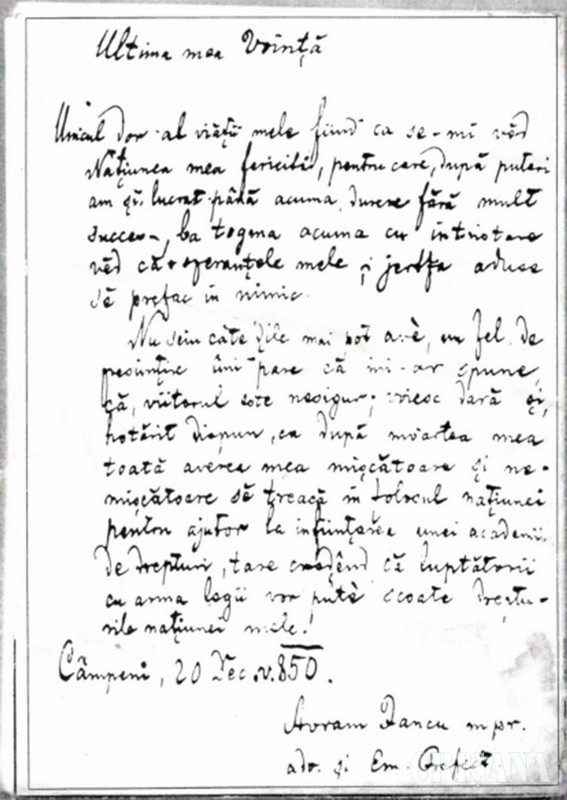 Ultima mea Voință
Unicul dor al viății mele fiind ca se-mi văd
Națiunea mea fericită, pentru care, după puteri
am și lucrat până acuma, durere fără mult
succes, ba togma acuma cu întristare
văd că speranțele mele și jertfa aduse
să prefac în nimic.
Nu sciu câte zile mai pot avè, un fel de
presimțire îmi pare că mi-ar spune,
că, viitorul este nesigur; voiesc dară și
hotărît dispun, ca după moartea mea
toată averea mea mișcătoare și ne-
mișcătoare să treacă în folosul națiunei
pentru ajutor la înființarea unei academii
de drepturi, tare crezênd că luptătorii
cu arma legii vor putè scoate dreptu-
rile națiunei mele.
Câmpeni, 20 Dec. v. 850.
Avram Iancu mpr.
adv. și Em. Prefect
CRIȘANA